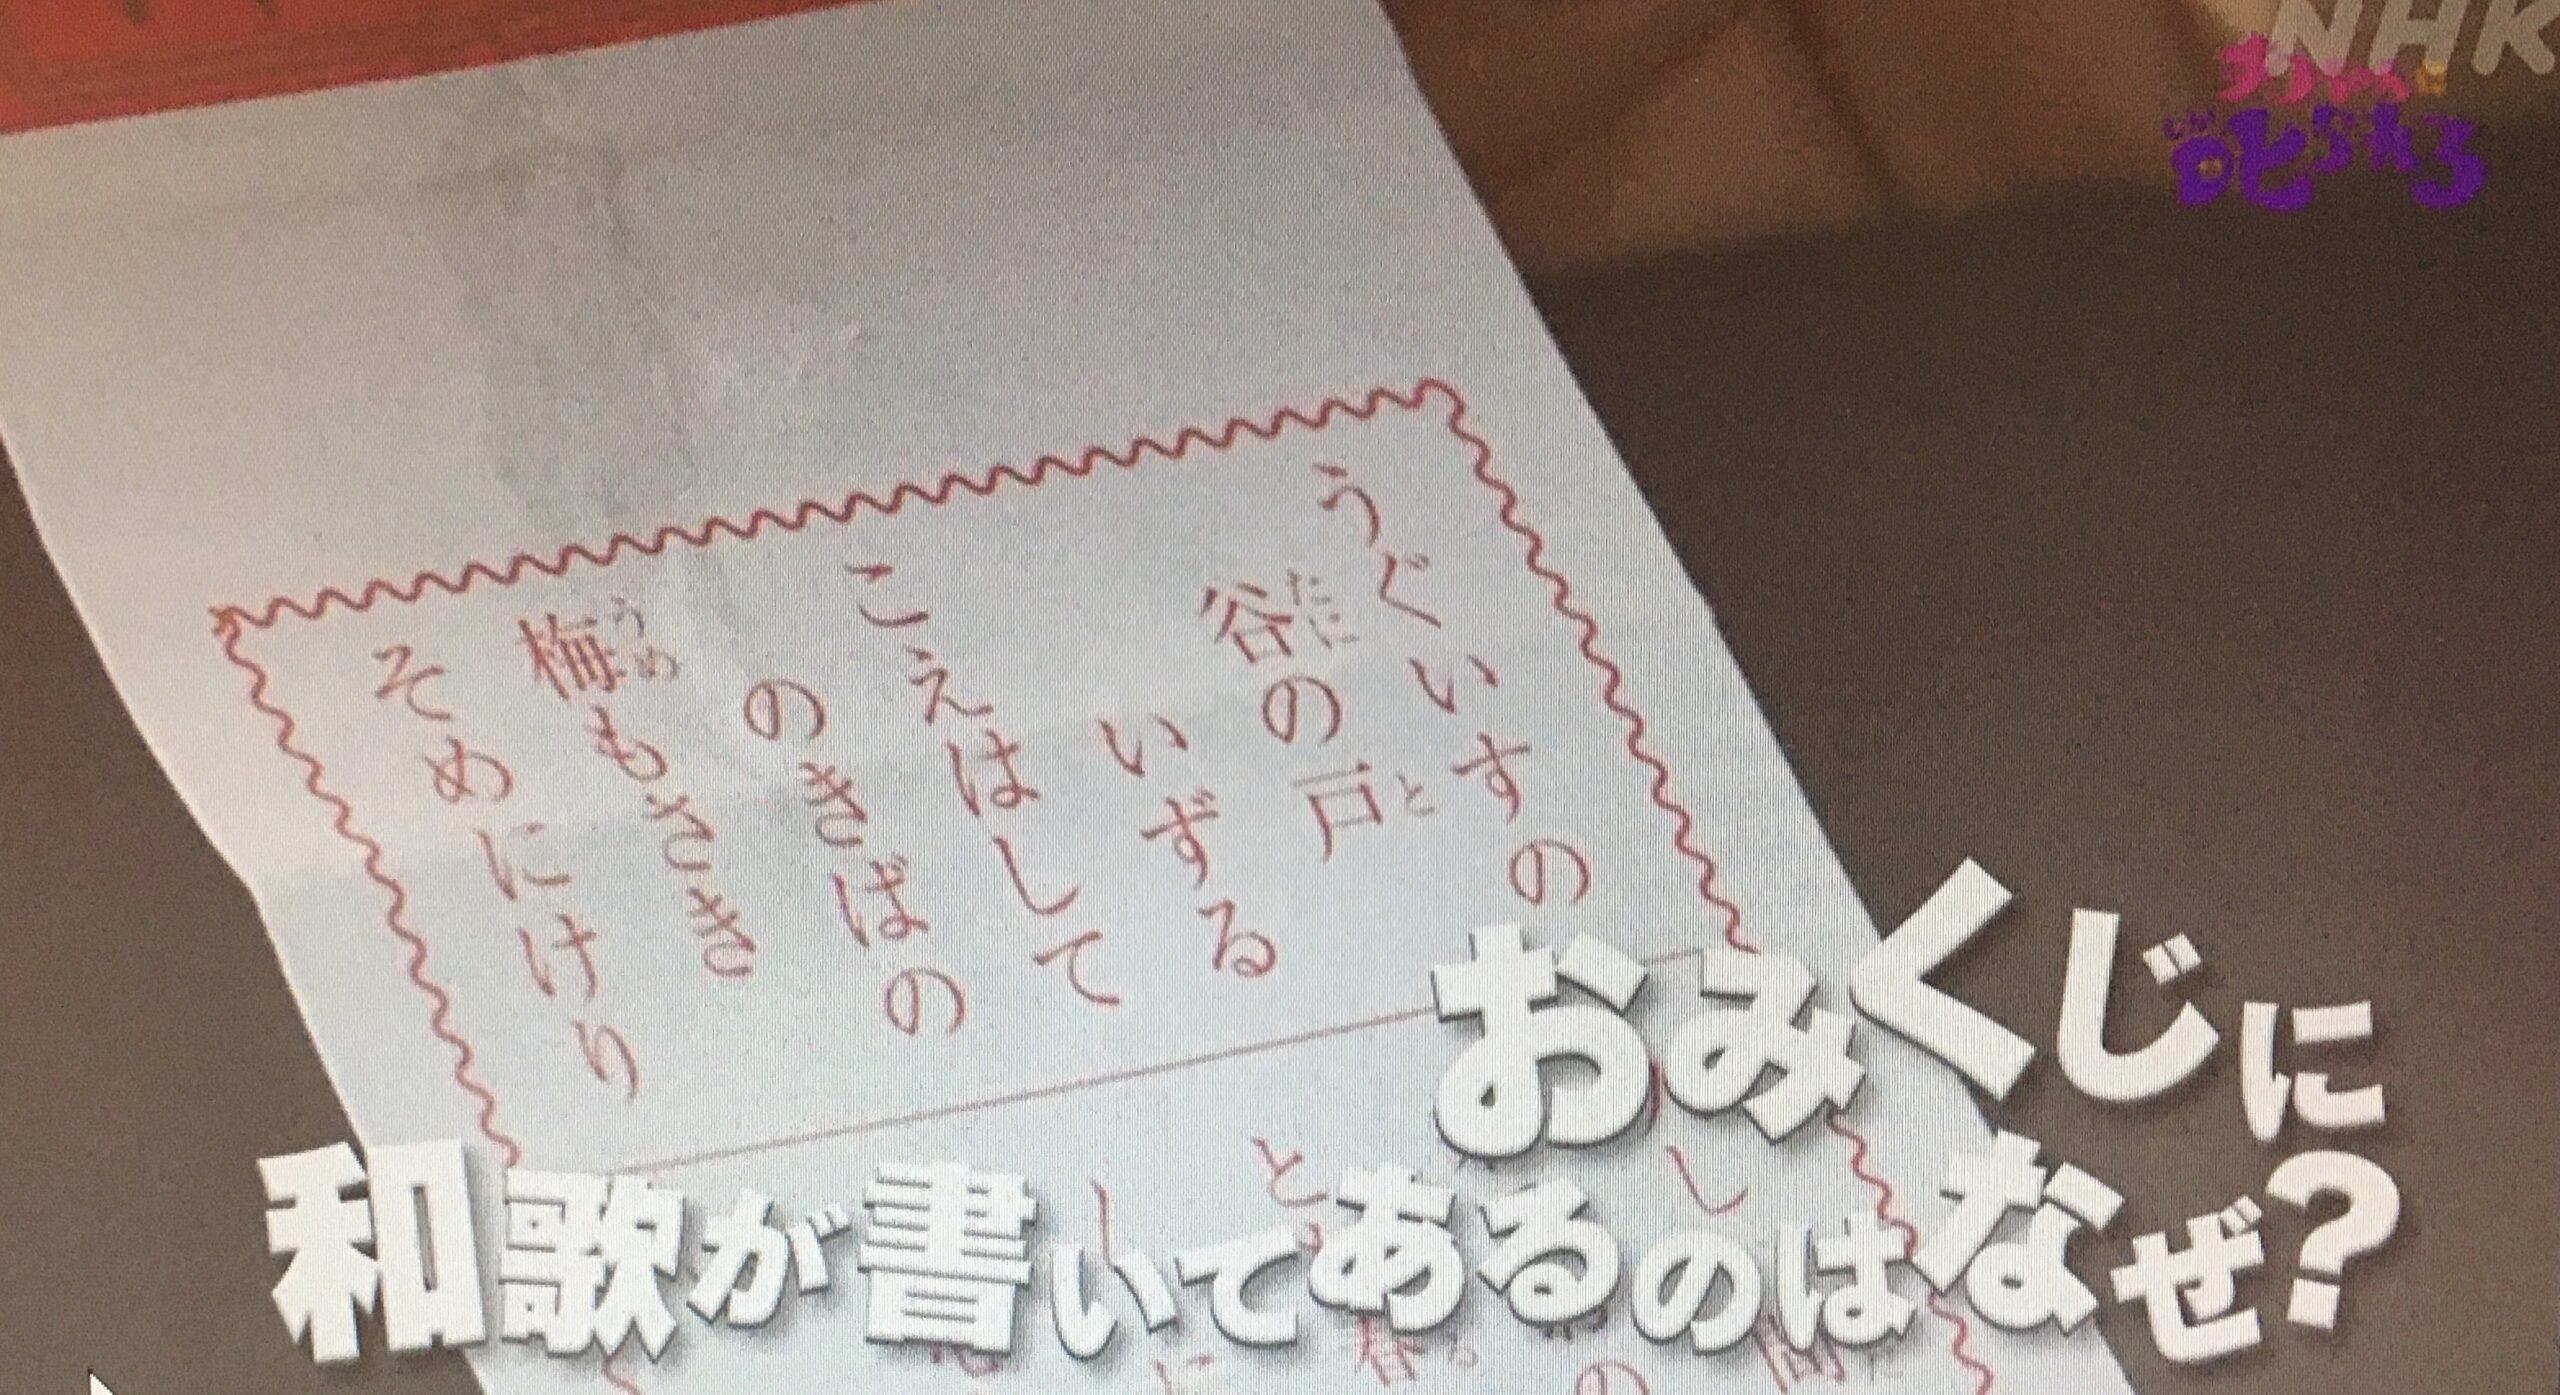 NHK
チコちゃんに
叱られる
うぐいすの
谷の戸
いずる
こえはして
のきばの
梅もさき
そめにけり
おみくじに
和歌が書いてあるのはなぜ?